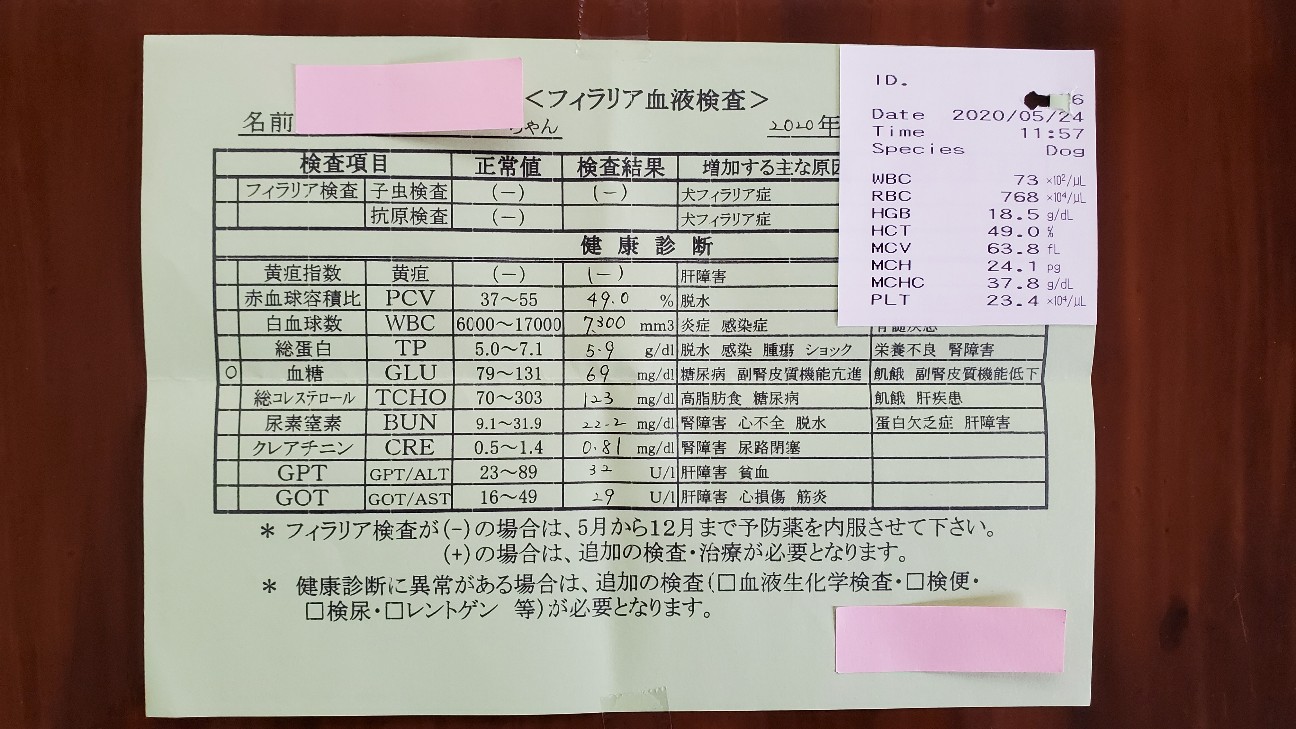 <フィラリア血液検査>
名前 ちゃん 2020年
検査項目 正常値 検査結果 増加する主な原因
フィラリア検査 子虫検査 (-) (-) 犬フィラリア症
抗原検査 (-) 犬フィラリア症
健康診断
黄疸指数 黄疸 (-) (-) 肝障害
赤血球容積比 PCV 37~55 49.0 % 脱水
白血球数 WBC 6000~17000 7,300 mm3 炎症 感染症 骨髄疾患
総蛋白 TP 5.0~7.1 5.9 g/dl 脱水 感染 腫瘍 ショック 栄養不良 腎障害
○ 血糖 GLU 79~131 69 mg/dl 糖尿病 副腎皮質機能亢進 飢餓 副腎皮質機能低下
総コレステロール TCHO 70~303 123 mg/dl 高脂肪食 糖尿病 飢餓 肝疾患
尿素窒素 BUN 9.1~31.9 22.2 mg/dl 腎障害 心不全 脱水 蛋白欠乏症 肝障害
クレアチニン CRE 0.5~1.4 0.81 mg/dl 腎障害 尿路閉塞
GPT GPT/ALT 23~89 32 U/l 肝障害 貧血
GOT GOT/AST 16~49 29 U/l 肝障害 心損傷 筋炎
* フィラリア検査が(-)の場合は、5月から12月まで予防薬を内服させて下さい。
(+)の場合は、追加の検査・治療が必要となります。
* 健康診断に異常がある場合は、追加の検査(□血液生化学検査・□検便・
□検尿・□レントゲン 等)が必要となります。
ID.
6
Date 2020/05/24
Time 11:57
Species Dog
WBC 73 ×10²/μL
RBC 768 ×10⁴/μL
HGB 18.5 g/dL
HCT 49.0 %
MCV 63.8 fL
MCH 24.1 pg
MCHC 37.8 g/dL
PLT 23.4 ×10⁴/μL